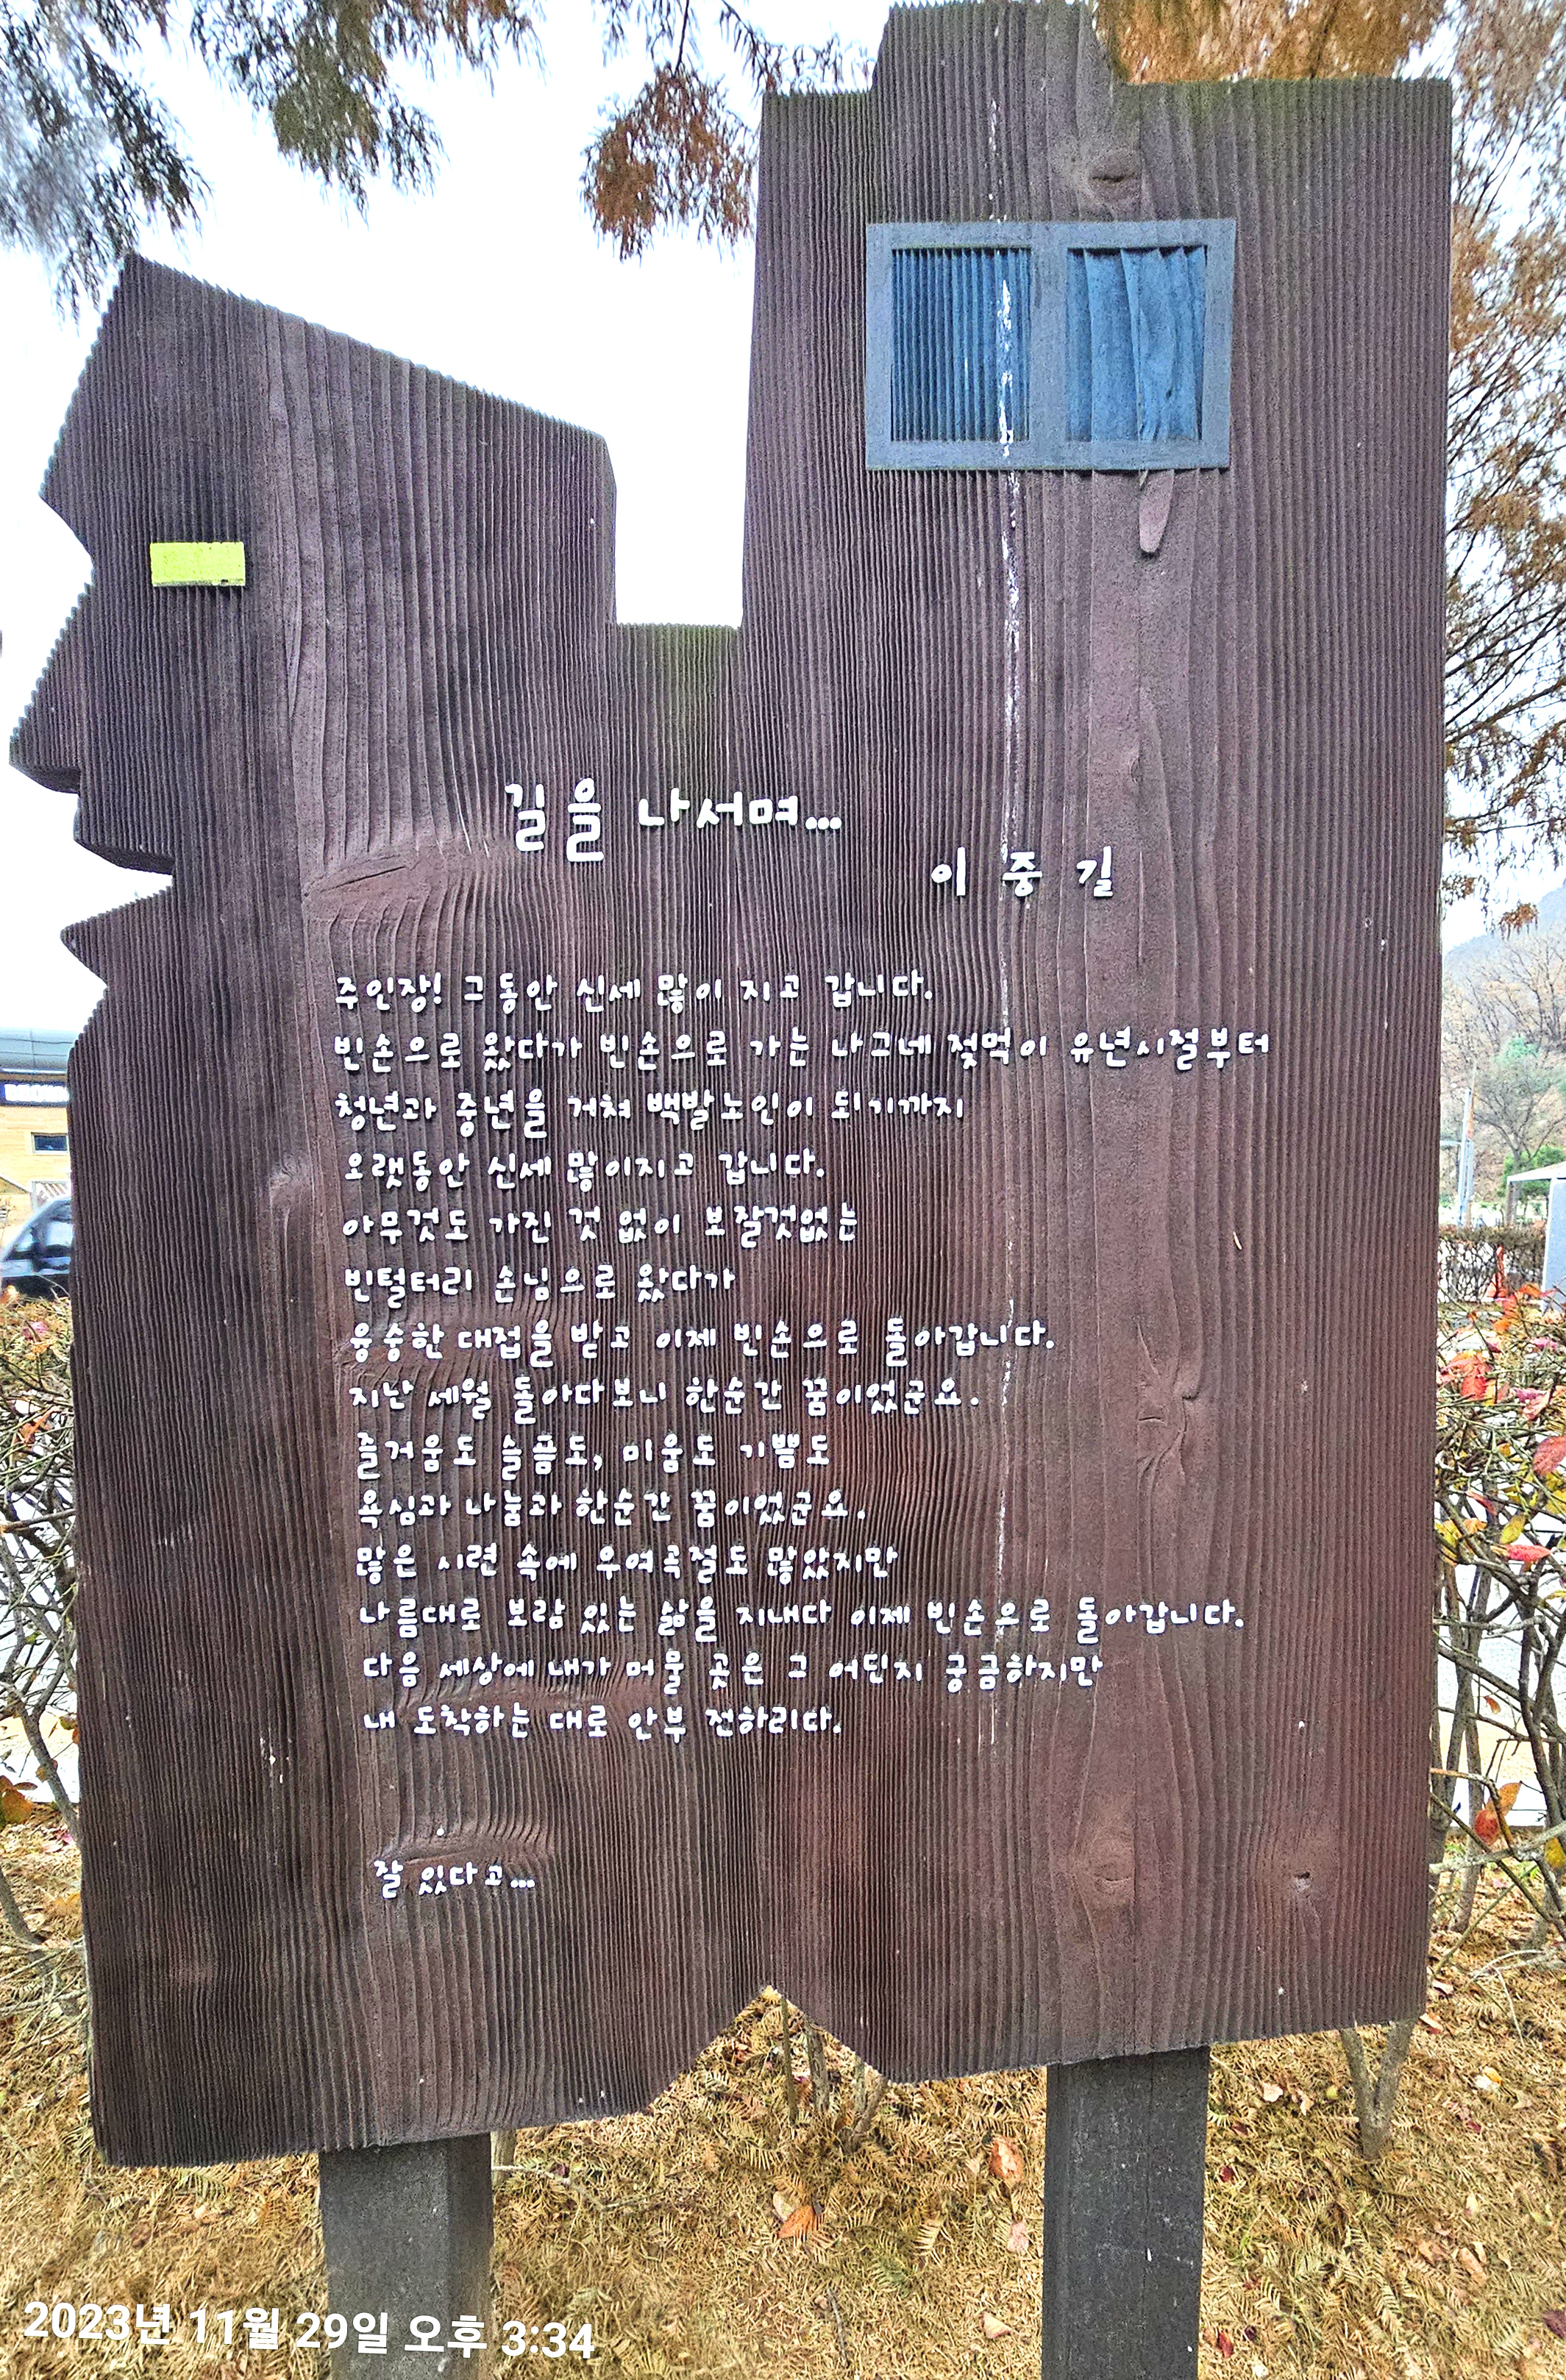 길을 나서며...
이 중 길
주인장! 그동안 신세 많이 지고 갑니다.
빈손으로 왔다가 빈손으로 가는 나그네 젖먹이 유년시절부터
청년과 중년을 거쳐 백발노인이 되기까지
오랫동안 신세 많이지고 갑니다.
아무것도 가진 것 없이 보잘것없는
빈털터리 손님으로 왔다가
융숭한 대접을 받고 이제 빈손으로 돌아갑니다.
지난 세월 돌아다보니 한순간 꿈이었군요.
즐거움도 슬픔도, 미움도 기쁨도
욕심과 나눔과 한순간 꿈이었군요.
많은 시련 속에 우여곡절도 많았지만
나름대로 보람 있는 삶을 지내다 이제 빈손으로 돌아갑니다.
다음 세상에 내가 머물 곳은 그 어딘지 궁금하지만
내 도착하는 대로 안부 전하리다.
잘 있다고...
2023년 11월 29일 오후 3:34